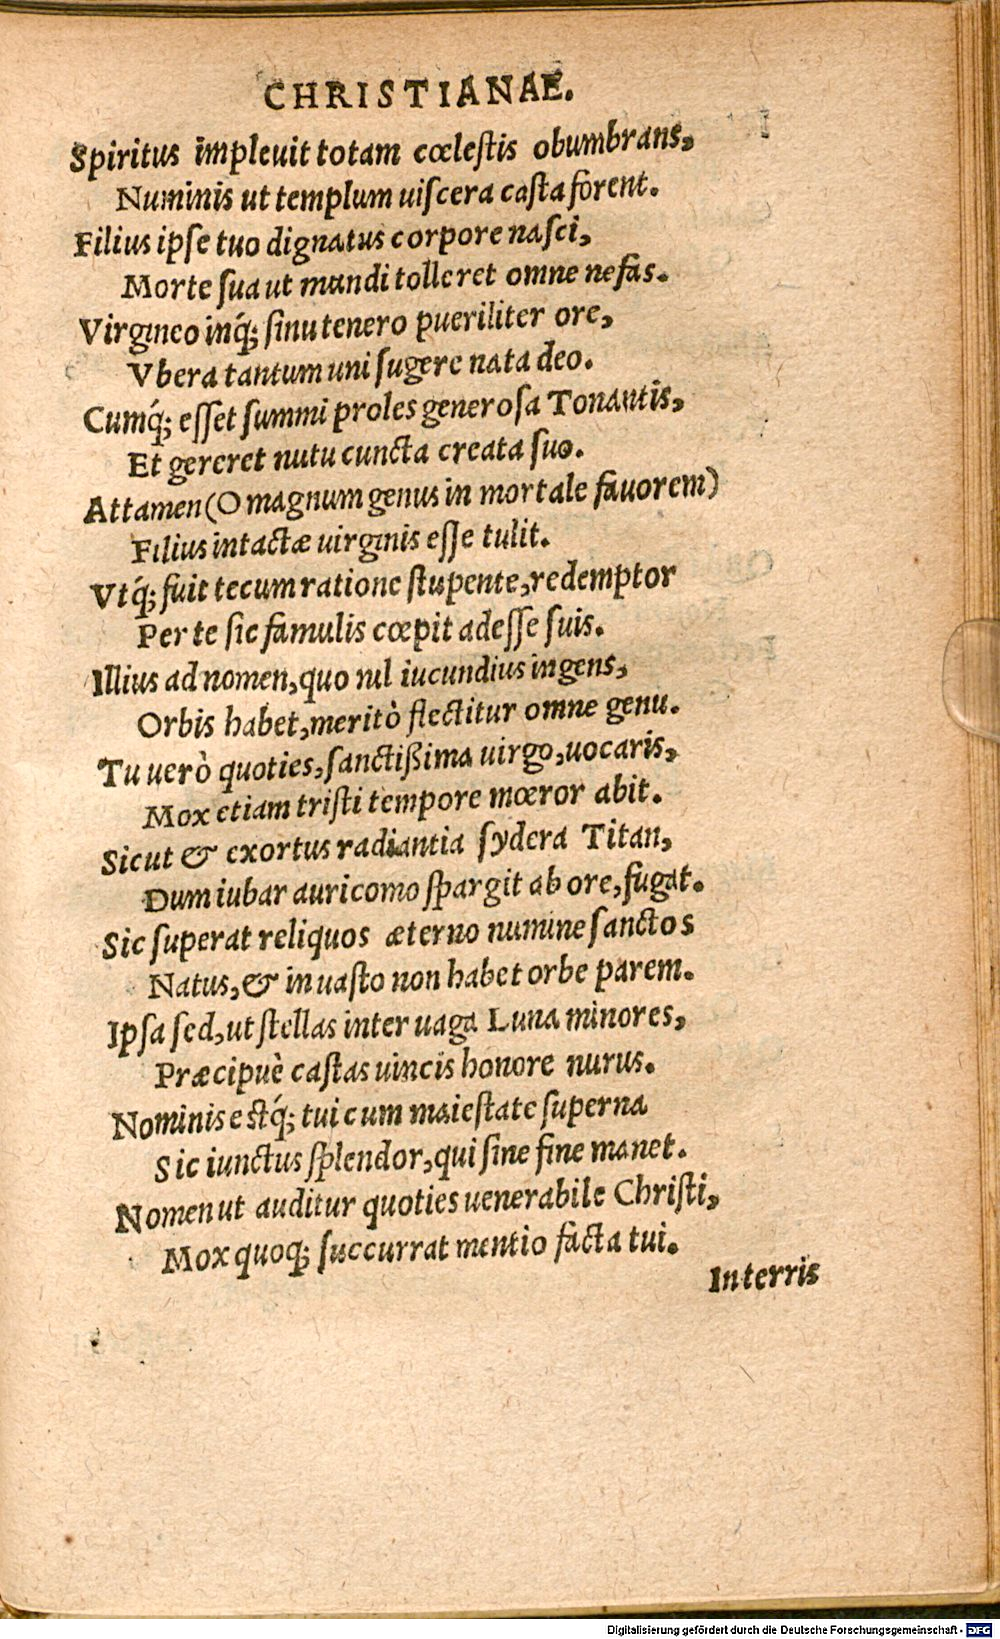 CHRISTIANAE.
Spiritus impleuit totam cœleſtis obumbrans,
Numinis ut templum uiſcera caſta forent.
Filius ipſe tuo dignatus corpore naſci,
Morte ſua ut mundi tolleret omne nefas.
Virgineo inq́; ſinu tenero pueriliter ore,
Vbera tantum uni ſugere nata deo.
Cumq́; eſſet ſummi proles generoſa Tonantis,
Et gereret nutu cuncta creata ſuo.
Attamen (O magnum genus in mortale fauorem)
Filius intactæ uirginis eſſe tulit.
Vtq́; fuit tecum ratione ſtupente, redemptor
Per te ſic famulis cœpit adeſſe ſuis.
Illius ad nomen, quo nil iucundius ingens,
Orbis habet, meritò flectitur omne genu.
Tu uerò quoties, ſanctißima uirgo, uocaris,
Mox etiam triſti tempore mœror abit.
Sicut & exortus radiantia ſydera Titan,
Dum iubar auricomo ſpargit ab ore, fugat.
Sic ſuperat reliquos æterno numine ſanctos
Natus, & in uaſto non habet orbe parem.
Ipſa ſed, ut ſtellas inter uaga Luna minores,
Præcipuè caſtas uincis honore nurus.
Nominis eſtq́; tui cum maieſtate ſuperna
Sic iunctus ſplendor, qui ſine fine manet.
Nomen ut auditur quoties uenerabile Chriſti,
Mox quoq; ſuccurrat mentio facta tui.
In terris
Digitalisierung gefördert durch die Deutsche Forschungsgemeinschaft - DFG